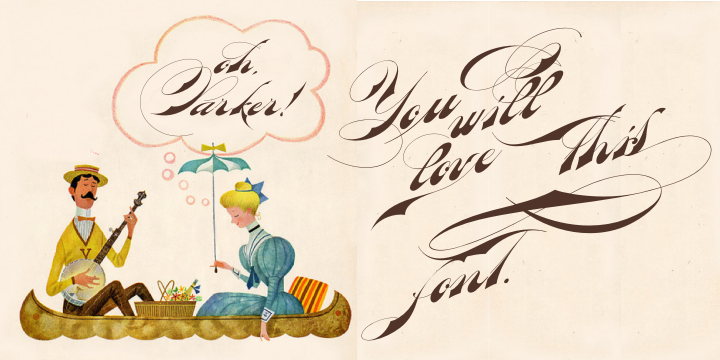 oh,
Parker!
Y
You
will
love This
font.